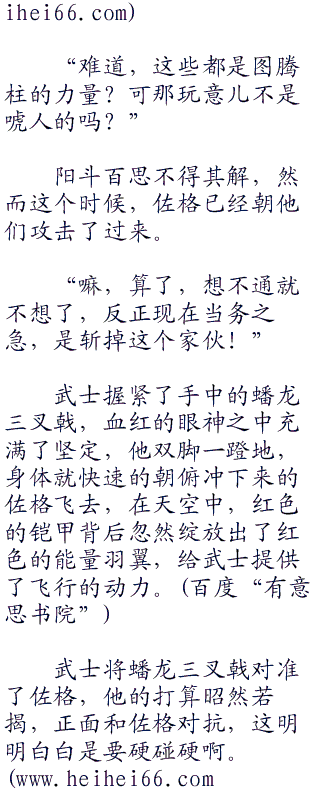 ihei66.com)
“难道，这些都是图腾
柱的力量？可那玩意儿不是
唬人的吗？”
阳斗百思不得其解，然
而这个时候，佐格已经朝他
们攻击了过来。
“嘛，算了，想不通就
不想了，反正现在当务之
急，是斩掉这个家伙！”
武士握紧了手中的蟠龙
三叉戟，血红的眼神之中充
满了坚定，他双脚一蹬地，
身体就快速的朝俯冲下来的
佐格飞去，在天空中，红色
的铠甲背后忽然绽放出了红
色的能量羽翼，给武士提供
了飞行的动力。(百度“有意
思书院”)
武士将蟠龙三叉戟对准
了佐格，他的打算昭然若
揭，正面和佐格对抗，这明
明白白是要硬碰硬啊。
(www.heihei66.com